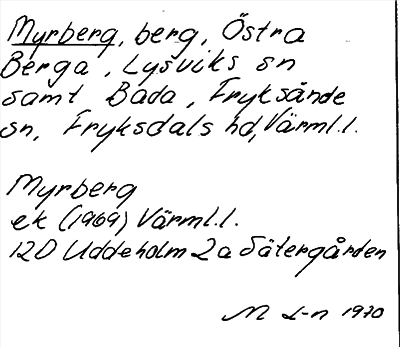 Myrberg, berg, Östra
Berga, Lysviks sn
samt Bada, Fryksände
sn, Fryksdals hd, Värml.l.
Myrberg
ek (1969) Värml.l.
12D Uddeholm 2a Sätergården
M L-n 1970